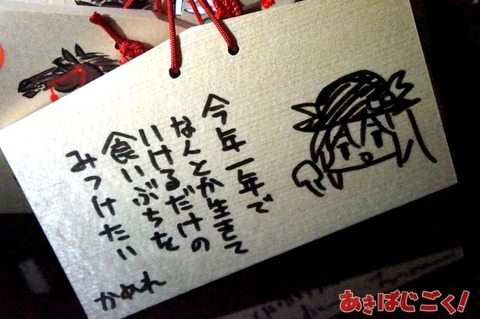 今年一年で
なんとか生きて
いけるだけの
食いぶちを
みつけたい
かめれ
あきばじごく!